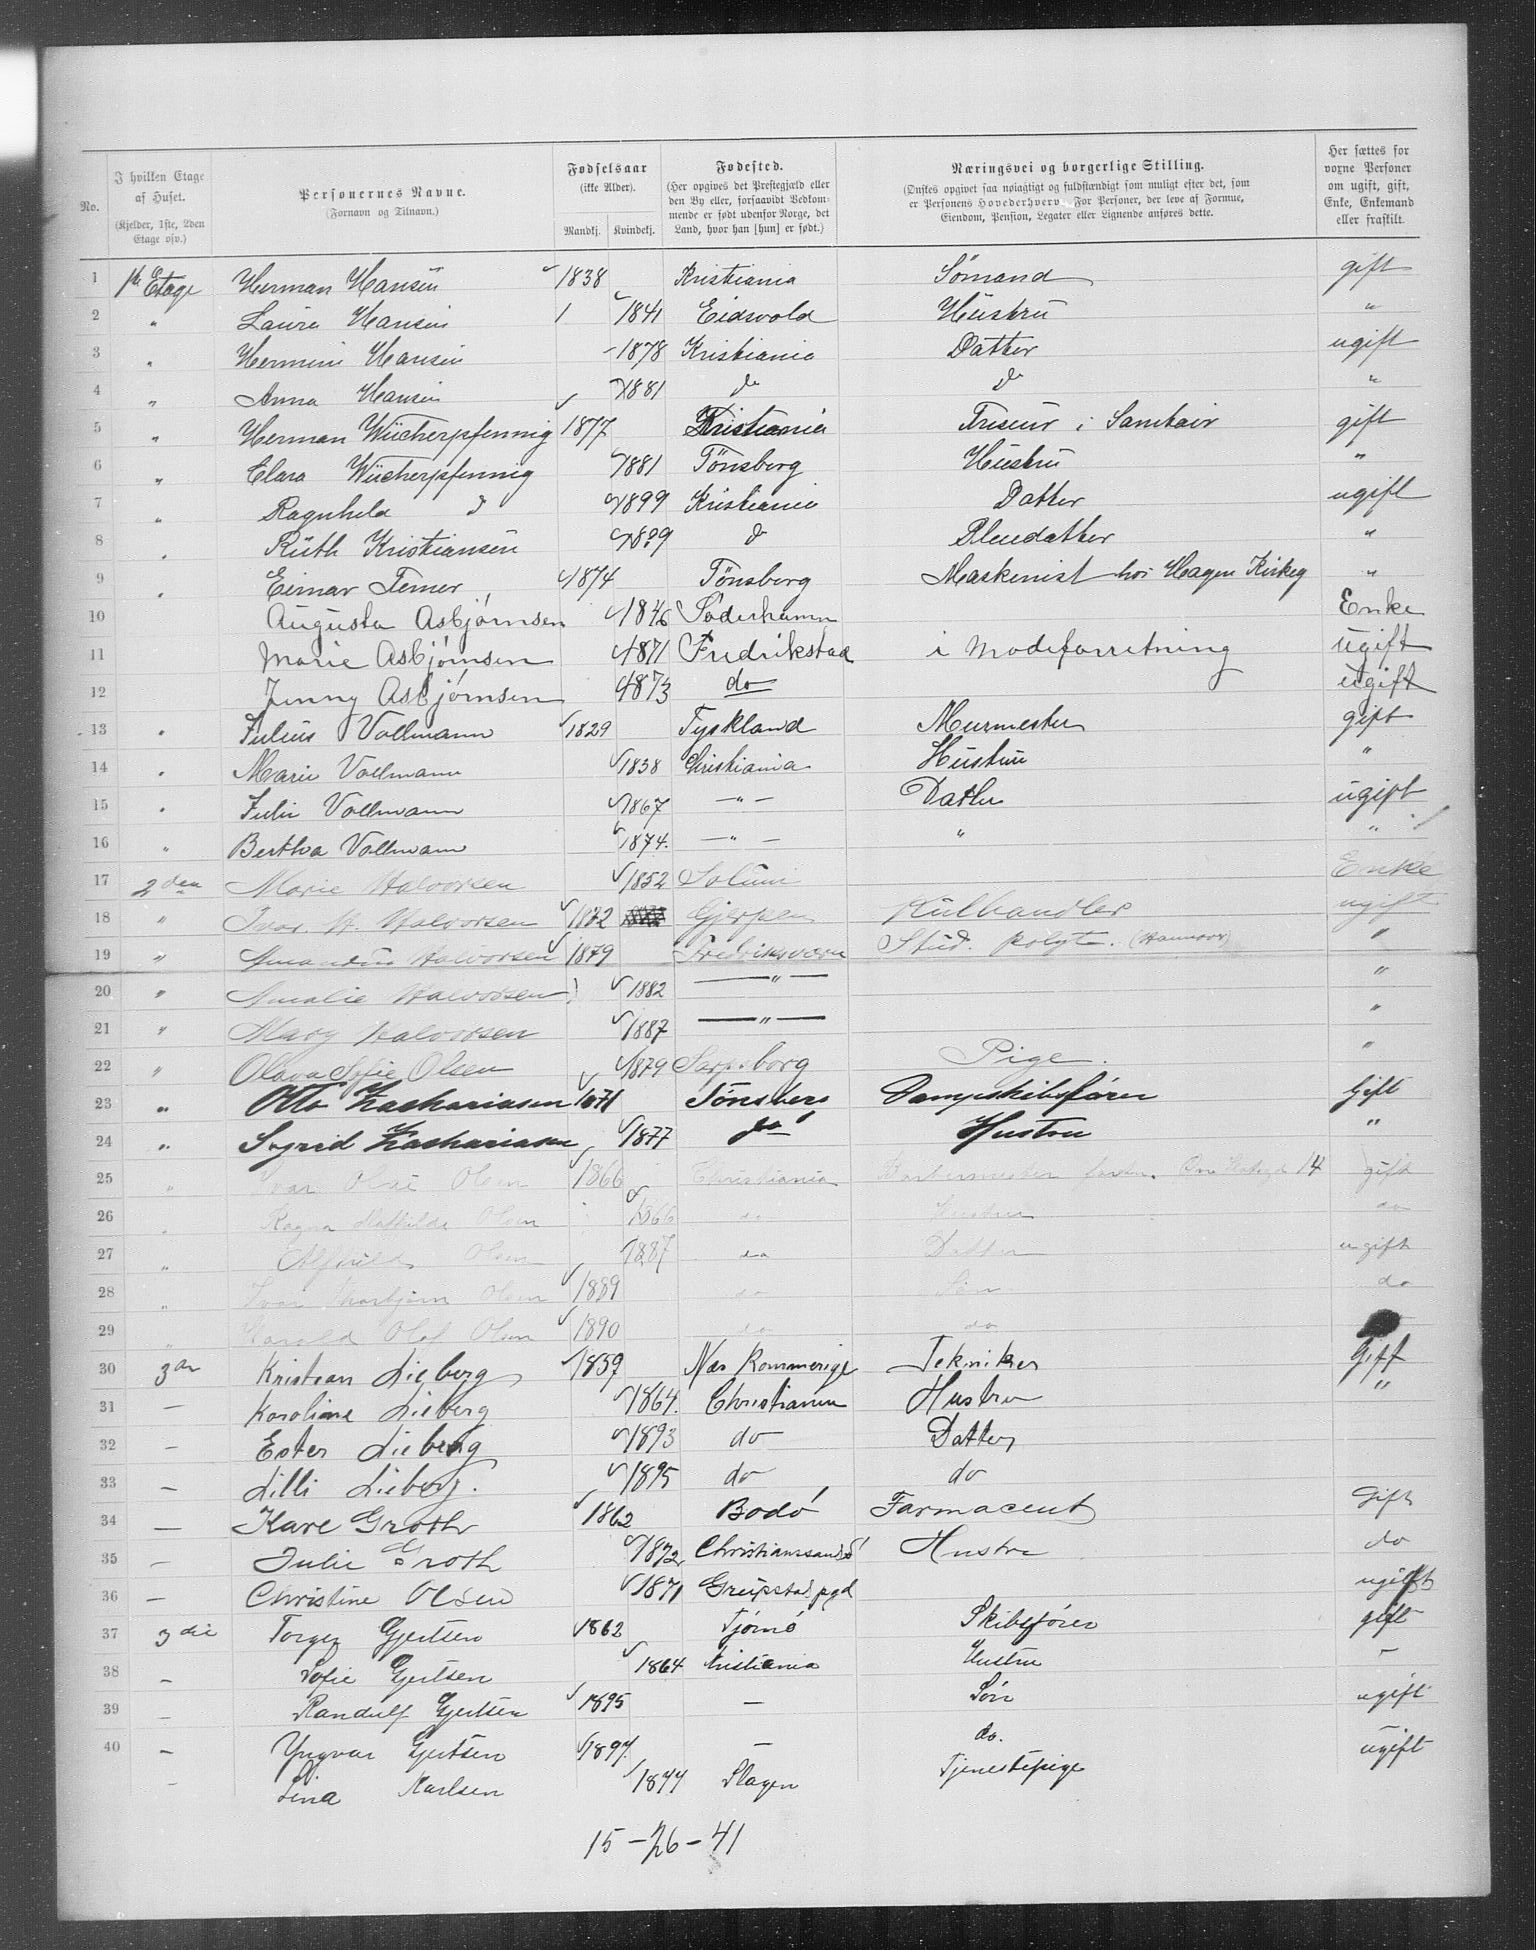 No. | I hvilken Etage af Huset. (Kjelder, 1ste, 2den Etage osv.) | Personernes Navne. (Fornavn og Tilnavn.) | Fødselsaar (ikke Alder). Mandkj. Kvindekj. | Fødested. (Her opgives det Prestegjæld eller den By eller, forsaavidt Vedkommende er født udenfor Norge, det Land, hvor han [hun] er født.) | Næringsvei og borgerlige Stilling. (Ønskes opgivet saa nøiagtigt og fuldstændigt som muligt efter det, som er Personens Hovederhverv. For Personer, der leve af Formue, Eiendom, Pension, Legater eller Lignende anføres dette. | Her sættes for voxne Personer om ugift, gift, Enke, Enkemand eller fraskilt.
1 1ste Etage Herman Hansen 1838 Kristiania Sömand gift
2 " Laura Hansen 1 1841 Eidsvold Hustru "
3 " Hermine Hansen 1878 Kristiania Datter ugift
4 " Anna Hansen 1881 do do "
5 " Herman Wücherpfennig 1877 Kristiania Friseur i gift
6 " Clara Wücherpfennig 1881 Tönsberg Hustru "
7 " Ragnhild 1899 Kristiania Datter ugift
8 " Ruth Kristiansen 1899 do Pleiedatter "
9 " Einar 1874 Tönsberg Maskenist hos Hagen Kirkeg "
10 Augusta Asbjørnsen 1846 Söderhamn Enke
11 Marie Asbjørnsen 1871 Fredrikstad i Modeforretning ugift
12 Jenny Asbjørnsen 1873 do ugift
13 " Julius Vollmann 1829 Tyskland Murmester gift
14 " Marie Vollmann 1838 Christiania Hustru "
15 " Julie Vollmann 1867 — " — Datter ugift
16 " Bertha Vollmann 1874. — " — " "
17 2den Marie Halvorsen 1852 Solum Enke
18 " Ivar H. Halvorsen 1872 Gjerpen Kulhandler ugift
19 " Amandus Halvorsen 1879 Fredriksværn Stud. polyt. (Hannover) "
20 " Amalie Halvorsen 1882 — " — "
21 " Mary Halvorsen 1887 — " — "
22 " Olava Sofie Olsen 1879 Sarpsborg Pige. "
23 " Otto Zachariasen 1871 Tönsberg Dampskibsfører Gift
24 " Sigrid Zachariasen 1877 do Hustru "
25 " Ivar Olai Olsen 1866 Christiania Barbermester 14 gift
26 " Ragna Mathilde Olsen 1866 do Hustru do
27 " Alfhild Olsen 1887 do Datter ugift
28 " Ivar Thorbjørn Olsen 1889 do Søn do
29 " Harald Olaf Olsen 1890 do do
30 3die Kristian Lieberg 1859 Nes Rommerige Tekniker Gift
31 — Karoline Lieberg 1864. Christiania Hustru "
32 — Ester Lieberg 1893 do Datter
33 — Lilli Lieberg. 1895 do do
34 — Kare Groth 1862 Bodö Farmaceut Gift
35 — Julie Groth 1872 Christianssand Hustru do
36 — Christine Olsen 1871 Greipstad pgd ugift
37 3die Torger Gjertsen 1862 Tjömö Skibsfører gift
38 — Sofie Gjertsen 1864 Kristiania Hustru —
39 — Randulf Gjertsen 1895 — Søn ugift
40 — Yngvar Gjertsen 1897. — do. ugift
— Lina Karlsen 1877 Slagen Tjenestepige
15 – 26 – 41